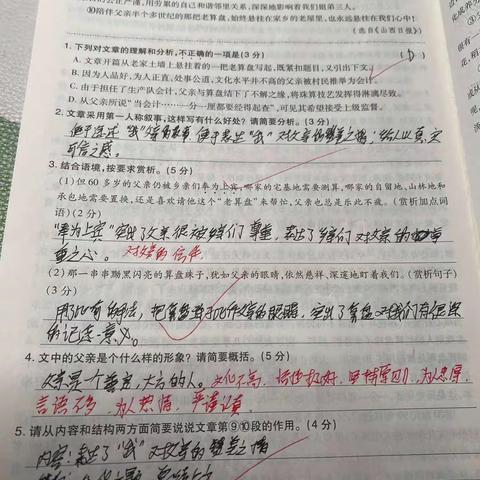 的公正严谨,用劳累的自己和谐邻里关系,深深地影响着我们姐弟三人。
⑩陪伴父亲半个多世纪的那把老算盘,始终悬挂在家乡的老屋里,也永远悬挂在我们心中!
(选自《山西日报》)
1. 下列对文章的理解和分析,不正确的一项是(3分) ( D )
A. 文章开篇从老家土墙上悬挂着的一把老算盘写起,既紧扣题目,又引出下文。
B. 因为人品好,为人正直,处事公道,文化水平并不高的父亲被村民推举为会计。
C. 由于担任了生产队会计,父亲与算盘结下了不解之缘,将珠算技艺发挥得淋漓尽致。
D. 从父亲所说“当会计………一分一厘都要经得起查”,可见其希望接受上级监督。
2. 文章采用第一人称叙事,这样写有什么好处?请简要分析。(3分)
可信之感。
3. 结合语境,按要求赏析。(5分)
(1)但60多岁的父亲仍被乡亲们奉为上宾,哪家的宅基地需要测算,哪家的自留地、山林地和
承包地需要置换,还是喜欢请他这个“老算盘”来帮忙,父亲也总是乐此不疲。(赏析加点词
语)(2分)
“奉为上宾”突出了父亲很被乡亲们尊重,表达了乡亲们对父亲的
重之心。 对父亲的信任
(2)那一串串黝黑闪亮的算盘珠子,犹如父亲的眼睛,依然慈祥、深邃地盯着我们。(赏析句子)
(3分)
的记忆、意义。
4. 文中的父亲是个什么样的形象?请简要概括。(5分)
父亲是一个善良,大方的人。文化不高,
言语不多,为人热情,严谨认真
5. 请从内容和结构两方面简要说说文章第⑨⑩段的作用。(4分)
内容:表达了“我”对父亲的赞美之情